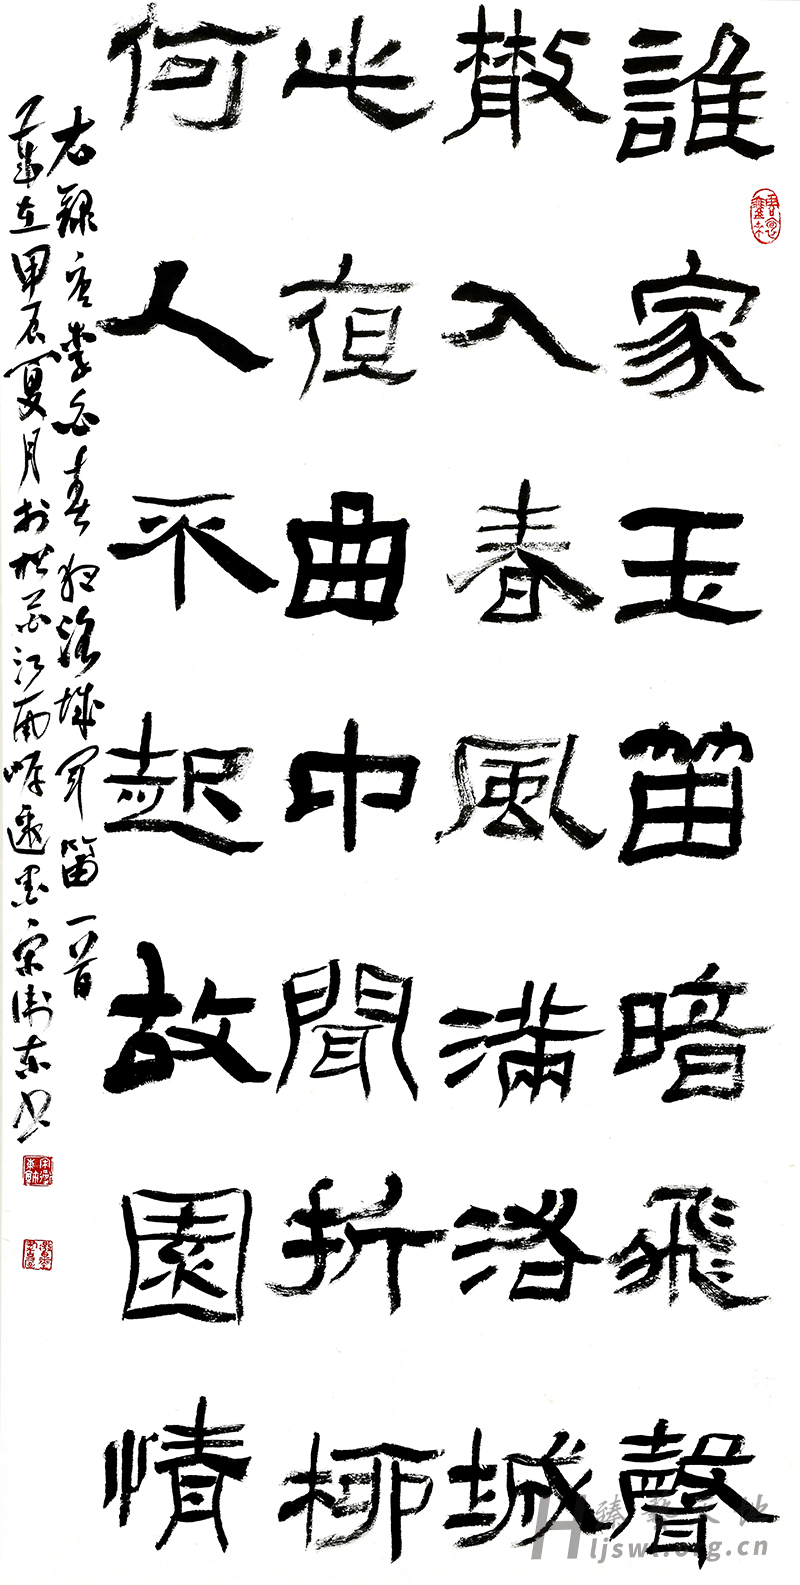 誰家玉笛暗飛聲
散入春風滿洛城
此夜曲中聞折柳
何人不起故園情
右録唐李白春夜洛城聞笛一首
在甲辰夏月於江宋衛東书
hljswl.org.cn